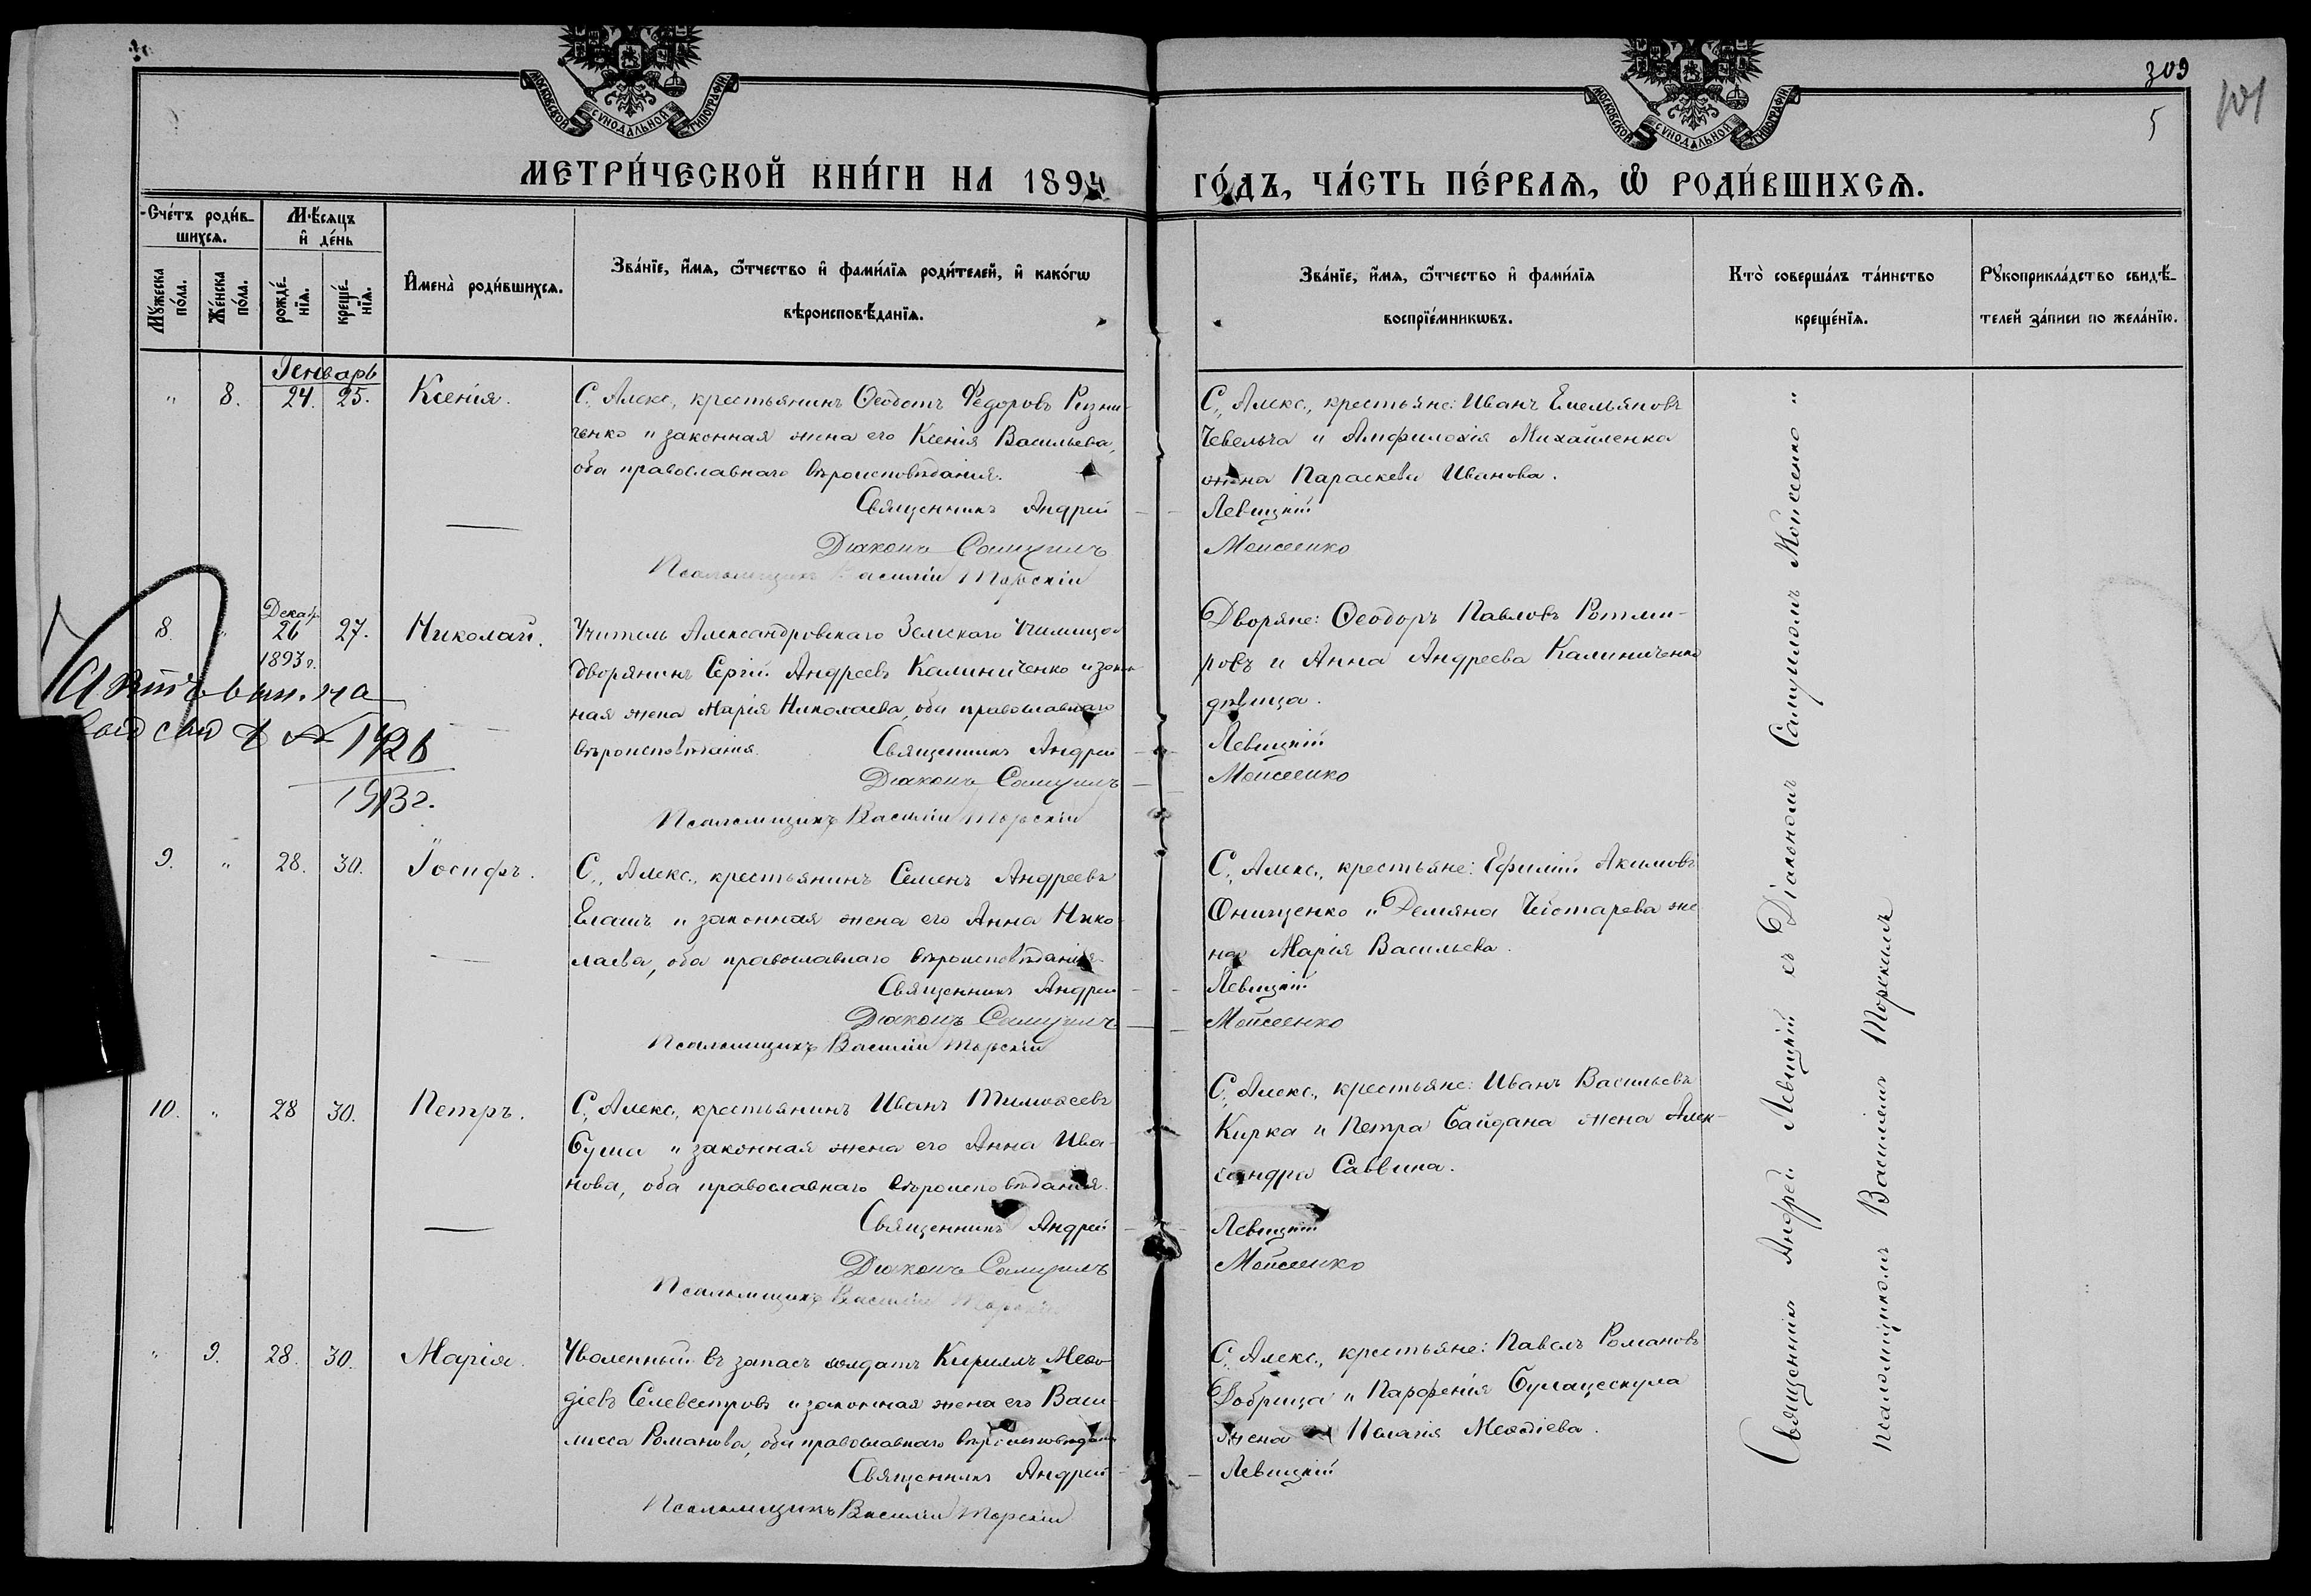 МОСКОВСКОЙ СУНОДАЛЬНОЙ ТИПОГРАФІИ
МЕТРИ́ЧЕСКОЙ КНИ́ГИ НА 1894
Сче́тъ роди́в-
шихсѧ.
Мѣ́сѧцъ
и҆ де́нь
Мꙋ́жеска
по́ла.
Же́нска
по́ла.
рожде́-
нїѧ.
креще́-
нїѧ.
И҆мена̀ роди́вшихсѧ.
Зва́нїе, и҆́мѧ, ѻ҆́тчество и҆ фами́лїѧ роди́телей, и҆ како́гѡ
вѣроисповѣ́данїѧ.
Генварь
" 8. 24. 25. Ксенія.
С. Алекс., крестьянинъ Ѳеодотъ Ѳедоровъ Резни-
ченко и законная жена его Ксенія Васильева,
оба православнаго вѣроисповѣданія.
Священникъ Андрей
Діаконъ Самуилъ
Псаломщикъ Василій Торскій
8. " Декабр. 26 1893 г. 27. Николай.
Учитель Александровскаго Земскаго Училища
дворянинъ Сергій Андреевъ Калиниченко и закон-
ная жена Марія Николаева, оба православнаго
вѣроисповѣданія. Священникъ Андрей
Діаконъ Самуилъ
Псаломщикъ Василій Торскій
1913 г.
9. " 28. 30. Іосифъ.
С., Алекс., крестьянинъ Семенъ Андреевъ
Елашъ и законная жена его Анна Нико-
лаева, оба православнаго вѣроисповѣданія.
Священникъ Андрей
Діаконъ Самуилъ
Псаломщикъ Василій Торскій
10. " 28 30. Петръ.
С., Алекс., крестьянинъ Иванъ Тимоѳеевъ
Буша и законная жена его Анна Ива-
нова, оба православнаго вѣроисповѣданія.
Священникъ Андрей
Діаконъ Самуилъ
Псаломщикъ Василій Торскій
" 9. 28. 30. Марія.
Уволенный въ запасъ солдатъ Кириллъ Меѳо-
діевъ Селевестровъ и законная жена его Васи-
лисса Романова, оба православнаго вѣроисповѣданія
Священникъ Андрей
Псаломщикъ Василій Торскій
309
5
МОСКОВСКОЙ СУНОДАЛЬНОЙ ТИПОГРАФІИ
ГО́ДЪ, ЧА́СТЬ ПЕ́РВАѦ, Ѡ҆ РОДИ́ВШИХСѦ.
Зва́нїе, и҆́мѧ, ѻ҆́тчество и҆ фами́лїѧ
воспрїе́мникѡвъ.
Кто̀ соверша́лъ та́инство
креще́нїѧ.
Рꙋкоприкла́дство свидѣ́-
телей за́писи по жела́нїю.
С., Алекс., крестьяне: Иванъ Емельяновъ
Чевельча и Амфилохія Михайленка
жена Параскева Иванова.
Левицкій
Моисеенко
Дворяне: Ѳеодоръ Павловъ Ротми-
ровъ и Анна Андреева Калиниченко
дѣвица.
Левицкій
Моисеенко
С., Алекс., крестьяне: Ефимій Акимовъ
Онищенко и Демяна Чистарева же
на Марія Васильева.
Левицкій
Моисеенко
С., Алекс., крестьяне: Иванъ Васильевъ
Кирка и Петра Байдана жена Алек-
сандра Саввина.
Левицкій
Моисеенко
С. Алекс., крестьяне: Павелъ Романовъ
Добрица и Парѳенія Бумацескула
жена Пелагія Меѳодіева.
Левицкій
Священникъ Андрей Левицкій съ Діакономъ Самуиломъ Моисеенко "
псаломщикомъ Василіемъ Торскимъ